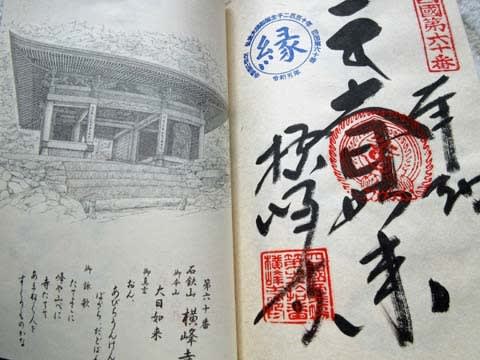 四國第六十番
奉納
大日如来
横峰寺
縁
令和元年
第六十番
石鉄山 横峰寺
御本尊
大日如来
御真言
おん
あびらうんけん
ばざら だどばん
御詠歌
たてよこに
峰や山べに
寺たてて
あまねく人を
すくうものかな